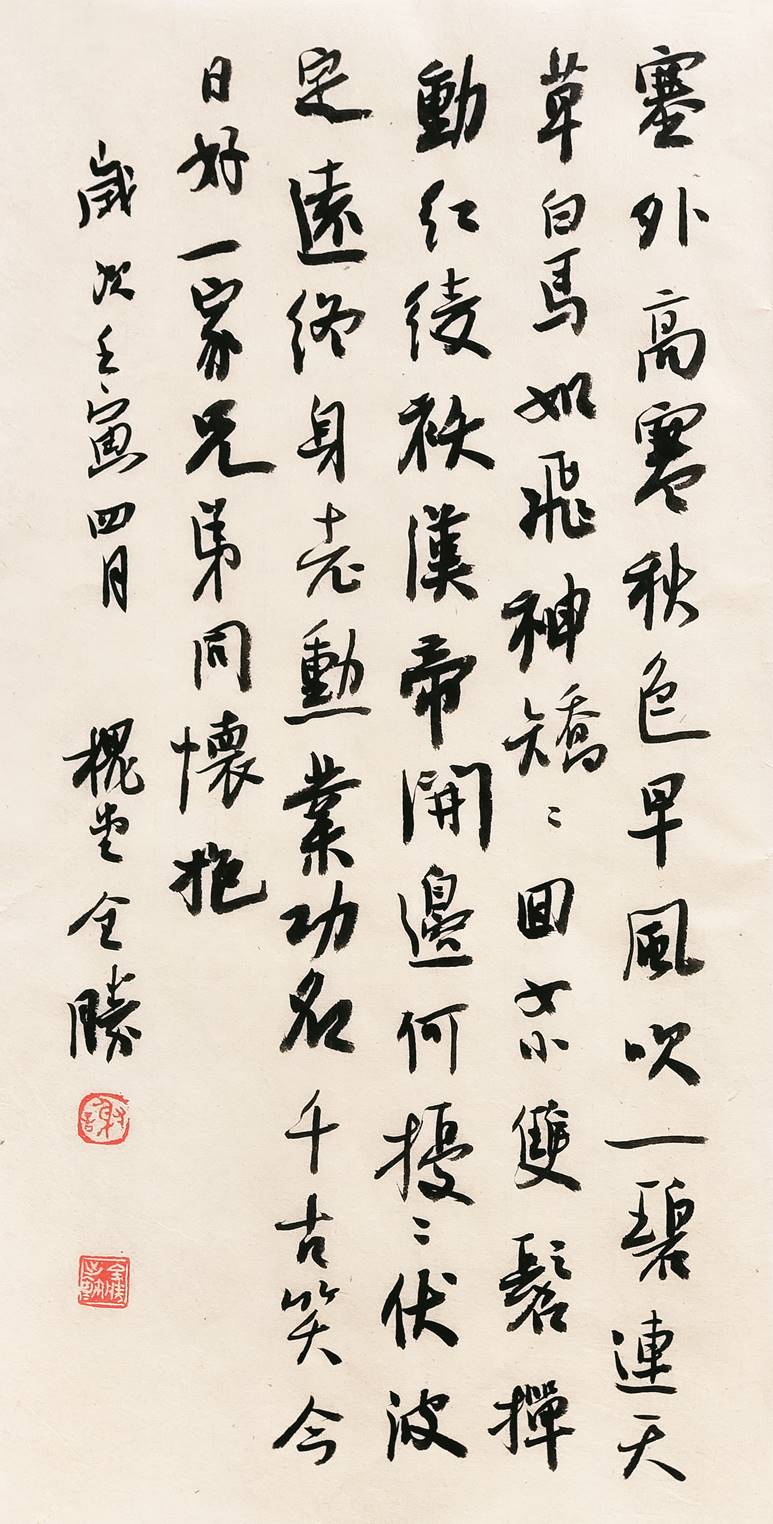 塞外高寒秋色早風吹一碧連天
草白馬如飛神矯〻回女小雙鬟撣
動紅綾袄漢帝開邊何擾〻伏波
定遠終身老勳業功名千古笑今
日好一家兄弟同懷抱
歲次壬寅四月 槐堂全勝
謝